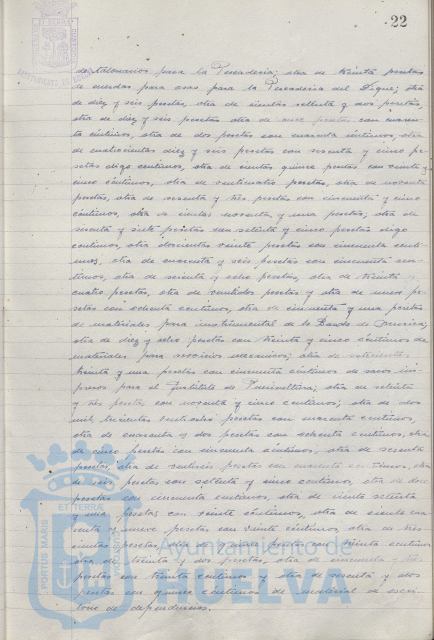 22
de talonarios para la Pescadería; otra de treinta pesetas
de cuerdas para asas para la Pescadería del Dique; otra
de diez y seis pesetas, otra de cientas setenta y dos pesetas,
otra de diez y seis pesetas otra de once pesetas con cuaren-
ta céntimos, otra de dos pesetas con cuarenta céntimos, otra
de cuatrocientas diez y seis pesetas con sesenta y cinco pe-
setas digo céntimos, otra de cientas quince pesetas con veinte y
cinco céntimos, otra de veinticuatro pesetas, otra de noventa
pesetas, otra de sesenta y tres pesetas con cincuenta y cinco
céntimos, otra de cientas noventa y una pesetas, otra de
senta y siete pesetas con setenta y cinco pesetas digo
céntimos, otra doscientas veinte pesetas con cincuenta cénti-
mos, otra de cuarenta y seis pesetas con cincuenta cén-
timos, otra de setenta y ocho pesetas, otra de treinta y
cuatro pesetas, otra de veintidos pesetas y otra de nueve pe-
setas con ochenta céntimos, otra de cincuenta y una pesetas
de materiales para instrumental de la Banda de Música,
otra de diez y ocho pesetas con treinta y cinco céntimos de
materiales para servicios mecánicos; otra de
treinta y una pesetas con cincuenta céntimos de varios im-
presos para el Instituto de Puericultura; otra de setenta
y tres pesetas con noventa y cinco céntimos; otra de dos
mil trescientas veintiocho pesetas con cuarenta céntimos,
otra de cuarenta y dos pesetas con ochenta céntimos, otra
de cinco pesetas con cincuenta céntimos, otra de sesenta
pesetas, otra de veintiseis pesetas con cuarenta céntimos, otra
de seis pesetas con setenta y cinco céntimos, otra de doce
pesetas con cincuenta céntimos, otra de ciento setenta
y seis pesetas con veinte céntimos, otra de ciento cua-
renta y nueve pesetas con veinte céntimos, otra de tres-
cientas pesetas, otra de nueve pesetas con treinta céntimos
otra de treinta y dos pesetas, otra de cincuenta y tres
pesetas con treinta céntimos y otra de sesenta y dos
pesetas con quince céntimos de material de escri-
torio de dependencias.
ET TERRAE
PORTUS MARIS
Ayuntamiento de
HUELVA